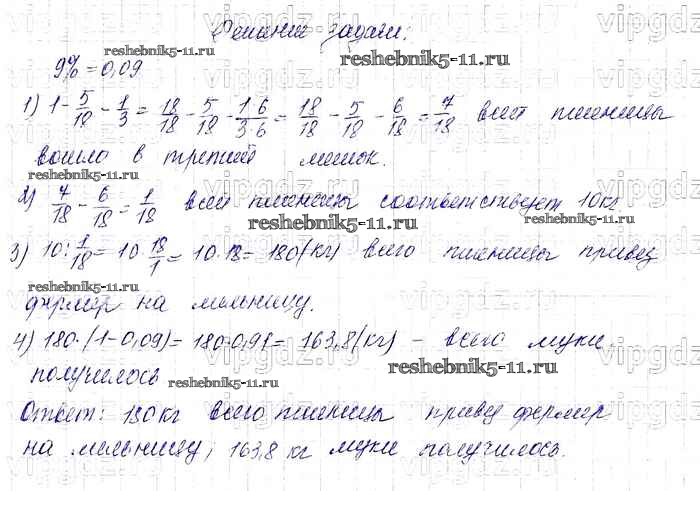 Решение задачи.
9% = 0,09
1) 1 - 5/18 - 1/3 = 18/18 - 5/18 - 1·6/3·6 = 18/18 - 5/18 - 6/18 = 7/18 всей пшеницы
вошло в третий мешок.
2) 7/18 - 6/18 = 1/18 всей пшеницы соответствует 10 кг
3) 10 : 1/18 = 10 · 18/1 = 10 · 18 = 180 (кг) всего пшеницы привез
фермер на мельницу.
4) 180 · (1 - 0,09) = 180 · 0,91 = 163,8 (кг) - всего муки
получилось
Ответ: 180 кг всего пшеницы привез фермер
на мельницу, 163,8 кг муки получилось.
reshebnik5-11.ru
reshebnik5-11.ru
reshebnik5-11.ru
reshebnik5-11.ru
reshebnik5-11.ru
reshebnik5-11.ru
reshebnik5-11.ru